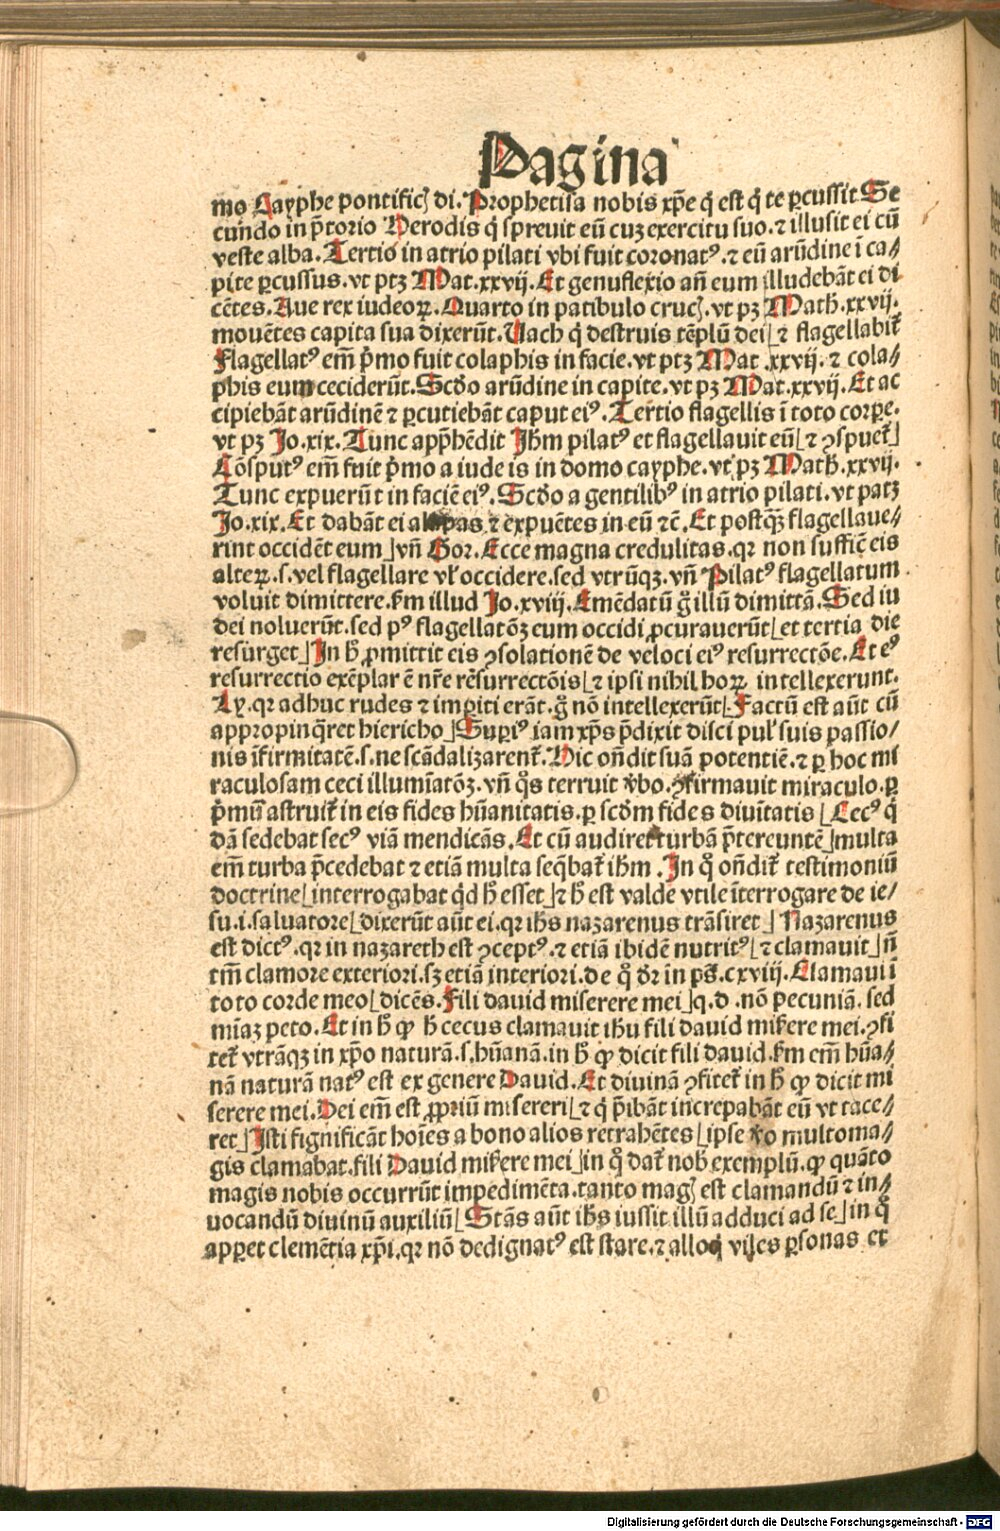 Pagina
mo Cayphe pontificꝭ di. Prophetisa nobis xp̄e q̇ est q̇ te ꝑcussit Se
cundo in p̄torio Herodis q̇ spreuit eū cuz exercitu suo. ⁊ illusit ei cū
veste alba. Tertio in atrio pilati vbi fuit coronatꝰ. ⁊ eū arūdine ī ca⸗
pite ꝑcussus. vt ptꝫ Mat. xxvij. Et genuflexio an̄ eum illudebāt ei di
cētes. Aue rex iudeoꝝ. Quarto in patibulo crucꝭ. vt pꝫ Math. xxvij.
mouētes capita sua dixerūt. Uach q̇ destruis tēplū dei ⁊ flagellabit̄
Flagellatꝰ em̄ p̄mo fuit colaphis in facie. vt ptꝫ Mat .xxvij. ⁊ cola⸗
phis eum ceciderūt. Scd̄o arūdine in capite. vt pꝫ Mat. xxvij. Et ac
cipiebāt arūdinē ⁊ ꝑcutiebāt caput eiꝰ. Tertio flagellis ī toto corꝑe.
vt pꝫ Jo. xix. Tunc app̄hēdit Jhm̄ pilatꝰ et flagellauit eū ⁊ ꝯspuet̄
Cōsputꝰ em̄ fuit p̄mo a iude is in domo cayphe. vt pꝫ Math. xxvij.
Tunc expuerūt in faciē eiꝰ. Scd̄o a gentilibꝰ in atrio pilati. vt patꝫ
Jo. xix. Et dabāt ei alapas ⁊ expuētes in eū ⁊c̄. Et postꝙ̄ flagellaue⸗
rint occidēt eum vn̄ Gor. Ecce magna credulitas. qꝛ non suffic̄ eis
alteꝝ. s. vel flagellare vl̛ occidere. sed vtrūqꝫ. vn̄ Pilatꝰ flagellatum
voluit dimittere. ẜm illud Jo. xviij. Emēdatū g̊ illū dimittā. Sed iu
dei noluerūt. sed pꝰ flagellatōꝫ eum occidi ꝓcurauerūt et tertia die
resurget In h̄ ꝓmittit eis ꝯsolationē de veloci eiꝰ resurrectōe. Et eꝰ
resurrectio exēplar ē nr̄e rēsurrectōis ⁊ ipsi nihil hoꝝ intellexerunt.
Ly. qꝛ adhuc rudes ⁊ impiti erāt. g̊ nō intellexerūt Factū est aūt cū
appropinq̄ret hiericho Supiꝰ iam xp̄s p̄dixit disci pul̛ suis passio⸗
nis īfirmitatē. s. ne scādalizarent̄. Hic on̄dit suā potentiē. ⁊ ꝑ hoc mi
raculosam ceci illumīatōꝫ. vn̄ q̊s terruit v̄bo. ꝯfirmauit miraculo. ꝑ
p̄mū astruit̄ in eis fides hūanitatis. ꝑ scdm̄ fides diuītatis Cecꝰ q̇
dā sedebat secꝰ viā mendicās. Et cū audiret turbā p̄tereuntē multa
em̄ turba p̄cedebat ⁊ etiā multa seq̄bat̄ ihm̄ . In q̊ on̄dit̄ testimoniū
doctrine interrogabat q̇d h̄ esset ⁊ h̄ est valde vtile īterrogare de ie⸗
su. i. saluatore dixerūt aūt ei. qꝛ ihs̄ nazarenus trāsiret Nazarenus
est dictꝰ. qꝛ in nazareth est ꝯceptꝰ. ⁊ etiā ibidē nutritꝰ ⁊ clamauit n̄
tm̄ clamore exteriori. sꝫ etiā interiori. de q̊ dr̄ in ps̄. cxviij. Clamaui ī
toto corde meo dicēs. Fili dauid miserere mei q. d .nō pecuniā. sed
mīaꝫ peto. Et in h̄ ꝙ h̄ cecus clamauit ihū fili dauid mis̄ere mei. ꝯfi
tet̄ vtrāqꝫ in xp̄o naturā. s. hūanā. in h̄ ꝙ dicit fili dauid. ẜm em̄ hūa⸗
nā naturā natꝰ est ex genere Dauid. Et diuinā ꝯfitet̄ in h̄ ꝙ dicit mi
serere mei. Dei em̄ est ꝓpriū misereri ⁊ q̇ p̄ibāt increpabāt eū vt tace⸗
ret Isti significāt hoīes a bono alios retrahētes ipse v̄o multo ma⸗
gis clamabat. fili Dauid mis̄ere mei in q̊ dat̄ nob̄ exemplū. ꝙ quāto
magis nobis occurrūt impedimēta. tanto magꝭ est clamandū ⁊ in⸗
uocandū diuinū auxiliū Stās aūt ihs̄ iussit illū adduci ad se in q̊
apꝑet clemētia xp̄i. qꝛ nō dedignatꝰ est stare. ⁊ alloq̇ viles ꝑsonas et
Digitalisierung gefördert durch die Deutsche Forschungsgemeinschaft - DFG